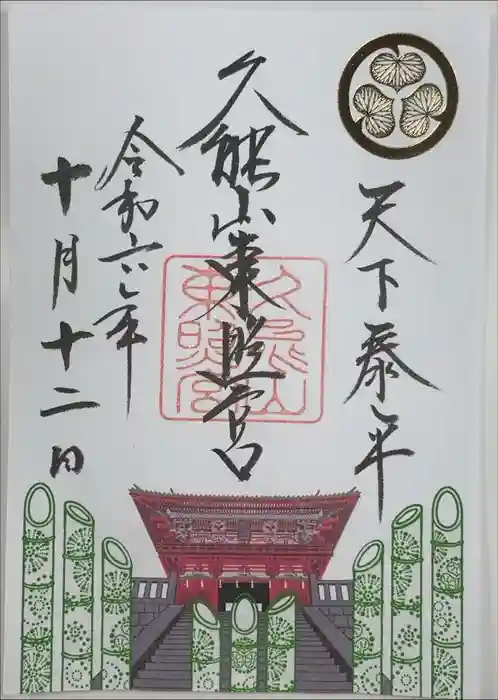 天下泰平
久能山東照宮
令和六年
十月十二日
久能山
東照宮